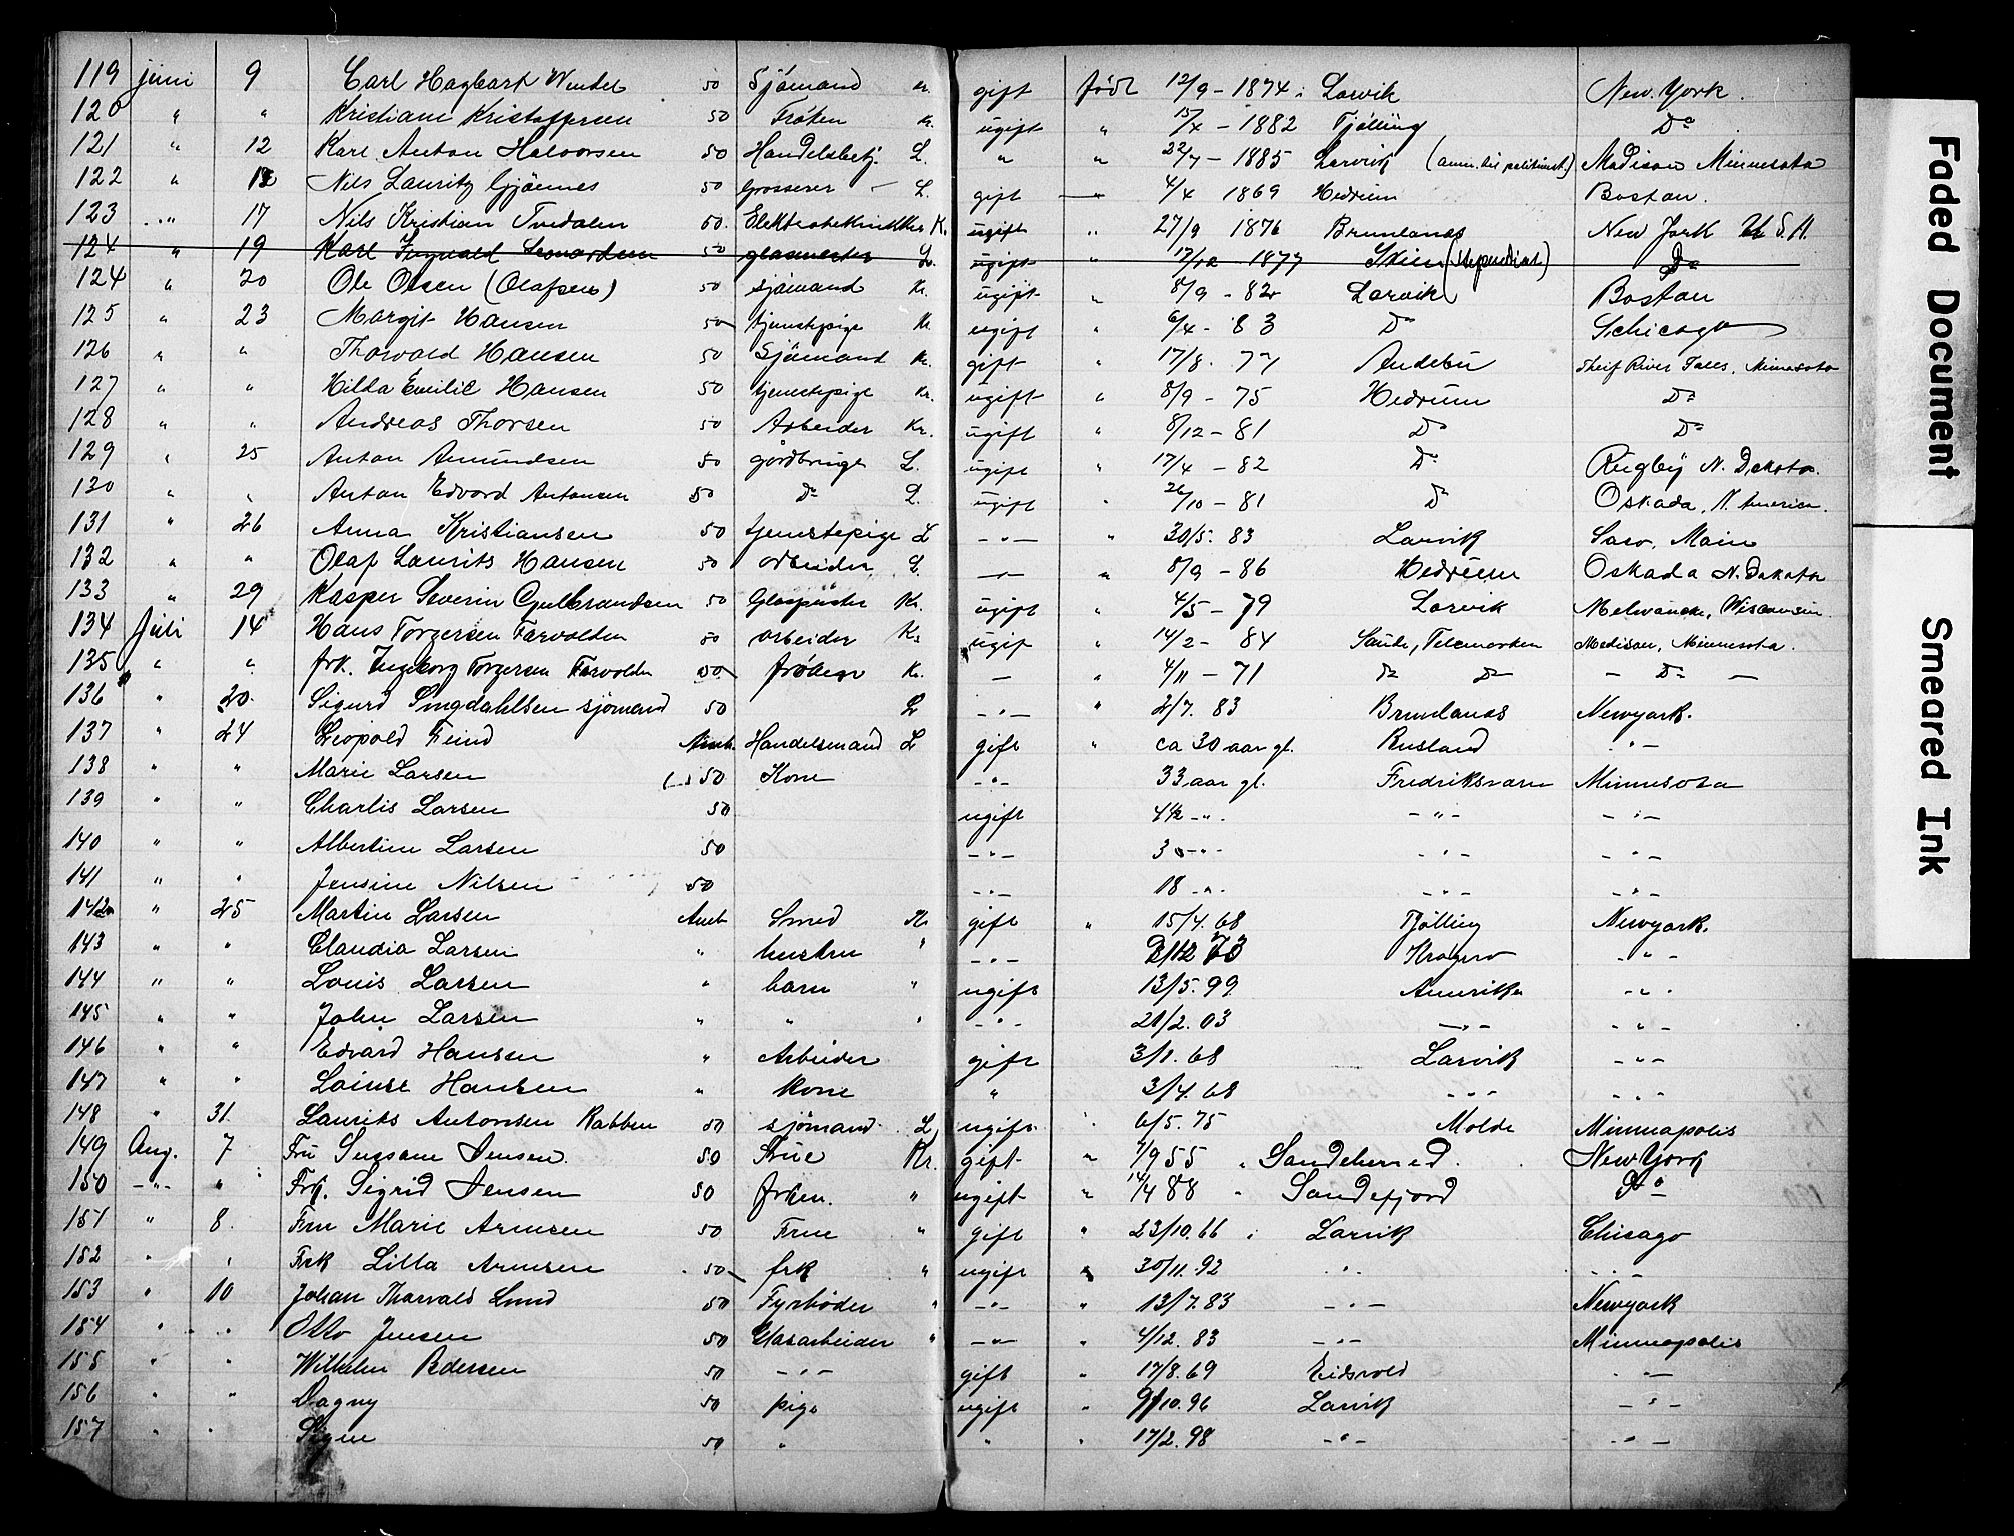 119 juni 9 Carl Hagbart Wendel 50 Sjömand gift född 12/9 - 1874 i Larvik New York.
120 " " Kristiane Kristoffersen 50 Fröken Kr. ugift " 15/4 - 1882 Tjölling Do
121 " 12 Karl Anton Halvorsen 50 Handelsbetj. L. " " 22/7 - 1885 Larvik Madison Minnesota
122 " Nils Lauritz Gjönnes 50 Grosserer - L. gift 4/4 1869 Hedrum Boston.
123 " 17 Nils Kristian Tvedalen 50. K. ugift " 27/9 1876 Brunlanæs New York U.S.A.
124 " 19 Karl 50 glasmester L. ugift " 17/12 1877 Skien (stepudiat) Do
124 " 20 Ole Olsen (Olafsen) 50 sjömand Kr. ugift " 8/9 - 82 Larvik Boston
125 " 23 Margit Hansen 50 tjenestepige Kr ugift " 6/4 - 83 Do Schicago
126 " " Thorvald Hansen 50 Sjömand Kr. gift " 17/8 - 77 Andebu Theif River Falls, Minnesota
127 " " Hilda Emilie Hansen 50 tjenestepige Kr. ugift " 8/9 - 75 Hedrum Do
128 " " Andreas Thorsen 50 Arbeider Kr. ugift " 8/12 - 81 Do Do
129 " 25 Anton Amundsen 50 gårdbruger L. ugift " 17/4 - 82 Do Rugby N. Dakota.
130 " " Anton Edvard Antonsen 50 Do L. ugift " 26/10 - 81 Do Oskada, N. America.
131 " 26 Anna Kristiansen 50 tjenestepige L - " - " 30/5. 83 Larvik Saco, Main
132 " " Olaf Laurits Hansen 50 arbeider L. - " - " 8/9 - 86 Hedrum Oskada N. Dakota
133 " 29 Kasper Severin Gulbrandsen 50 Glaspuster Kr. ugift " 4/5 - 79 Larvik Melwauckee, Wisconsin
134 Juli 14 Hans Torgersen Farvolden 50 arbeider Kr ugift " 14/2 - 84 Saude, Telemarken Madison, Minnesota.
135 " " frk. Ingeborg Torgersen Farvolden 50 fröken Kr. - " 4/11 - 71 Do Do - Do -
136 " 20. Sigurd Smgdahlsen sjömand 50 L - " - " 2/7. 83 Brunlanæs Newyork.
137 " 24 Leopold Feind Amk. Handelsmand L gift " ca 30 aar gl. Rusland - " -
138 " " Marie Larsen 50 Kone - " - 33 aar gl. Fredriksværn Minnesota
139 " " Charlis Larsen 50 ugift 4½ - " - - " - - " -
140 " " Albertine Larsen 50 - " - 3 - " - - " - - " -
141 " " Jensine Nilsen 50 - " - 18 - " - - " - - " -
142 " 25 Martin Larsen Amk Smed Kr gift " 15/4. 68 Tjölling Newyork.
143 " " Claudia Larsen " hustru " - " - 2/12 73 Kragerø - " -
144 " " Louis Larsen " barn " ugift 13/5. 99 Amerika - " -
145 " " John Larsen " " " - " - 21/2. 03 - " - - " -
146 " " Edvard Hansen " Arbeider gift 3/1. 68 Larvik - " -
147 " " Louise Hansen " kone " 3/4. 68 - " - - " -
148 " 31. Laurits Antonsen Rabben 50 sjömand L ugift " 6/5. 75 Molde Minneapolis
149 Aug. 7 Fru Sussane Jensen 50 Frue Kr. gift " 1/9 55 " Sandeherred. New York
150 - " - " Frk. Sigrid Jensen 50 frken. " ugift " 14/4 88 " Sandefjord Do
151 " 8. Fru Marie Arnesen 50 Frue " gift " 23/10. 66 i Larvik Chicago
152 " " Frk Lilla Arnesen 50 frk " ugift " 30/11. 92 " - " -
153 " 10 Johan Thorvald Lund 50 Fyrböder " - " - " 13/7. 83 - " - Newyork
154 " " Otto Jensen 50 Glasarbeider " - " - " 4/12. 83 - " - Minneapolis
155 " " Wilhelm Pedersen 50 - " - gift " 17/8. 69 Eidsvold - " -
156 " " Dagny 50 pige ugift " 9/10. 96 Larvik - " -
157 " " Signe 50 " " " 17/2. 98 - " - - " -
Faded Document
Smeared Ink